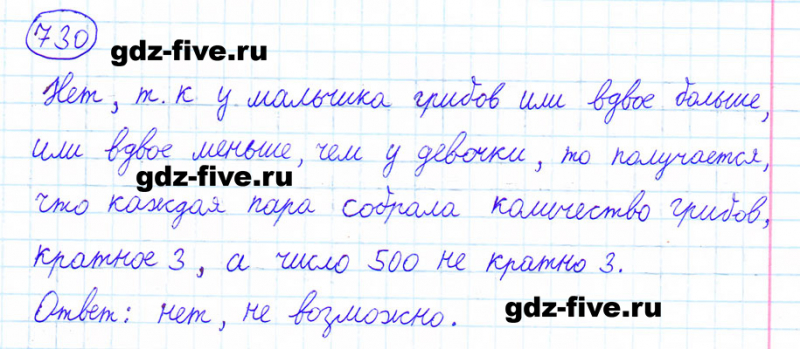 730
gdz-five.ru
Нет, т.к у мальчика грибов или вдвое больше,
или вдвое меньше, чем у девочки, то получается,
gdz-five.ru
что каждая пара собрала количество грибов,
кратное 3, а число 500 не кратно 3.
Ответ: нет, не возможно.
gdz-five.ru